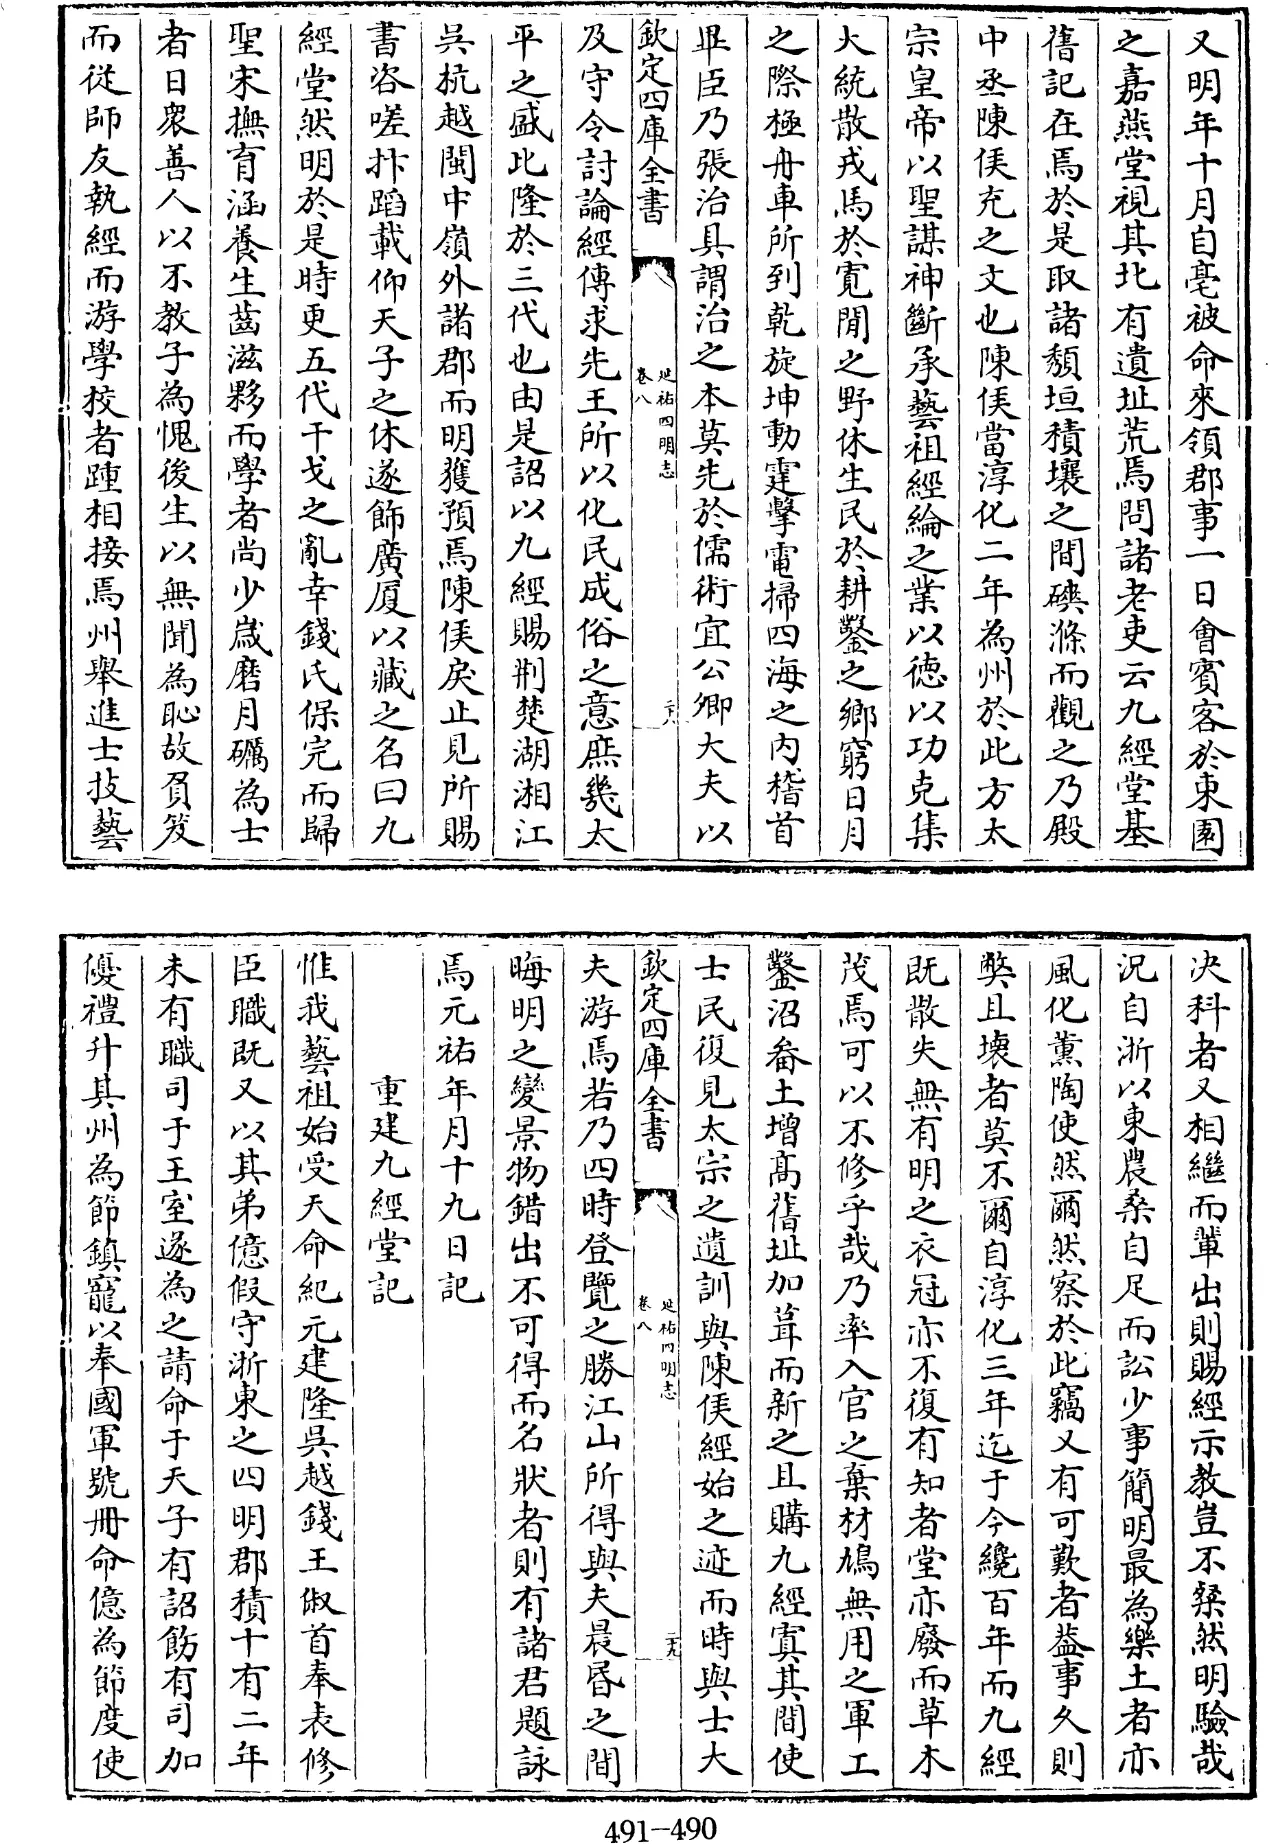 又明年十月自亳被命來領郡事一日會賓客於東園
之嘉燕堂視其北有遺址荒焉問諸老吏云九經堂基
舊記在焉於是取諸頽垣積壤之間磢滌而觀之乃殿
中丞陳侯充之文也陳侯當淳化二年為州於此方太
宗皇帝以聖謀神斷承藝祖經綸之業以徳以功克集
大統散戎馬於寛閒之野休生民於耕鑿之鄉窮日月
之際極舟車所到乾旋坤動霆擊電掃四海之内稽首
畢臣乃張治具謂治之本莫先於儒術宜公卿大夫以
欽定四庫全書
延祐四明志
卷八
二十八
及守令討論經傳求先王所以化民成俗之意庶幾太
平之盛比隆於三代也由是詔以九經賜荆楚湖湘江
吳杭越閩中嶺外諸郡而明獲預焉陳侯戾止見所賜
書咨嗟抃蹈載仰天子之休遂飾廣厦以藏之名曰九
經堂然明於是時更五代干戈之亂幸錢氏保完而歸
聖宋撫育涵養生齒滋夥而學者尚少嵗磨月礪為士
者日衆善人以不教子為愧後生以無聞為恥故負笈
而從師友執經而游學校者踵相接焉州舉進士技藝
决科者又相繼而輩出則賜經示教豈不粲然明驗哉
況自淛以東農桑自足而訟少事簡明最為樂土者亦
風化薫陶使然爾然察於此竊又有可歎者葢事久則
弊且壊者莫不爾自淳化三年迄于今纔百年而九經
既散失無有明之衣冠亦不復有知者堂亦廢而草木
茂焉可以不修乎哉乃率入官之棄材鳩無用之軍工
鑿沼畚土增髙舊址加葺而新之且購九經寘其間使
士民復見太宗之遺訓與陳侯經始之迹而時與士大
欽定四庫全書
延祐四明志
卷八
二十九
夫游焉若乃四時登覽之勝江山所得與夫晨昏之間
晦明之變景物錯出不可得而名狀者則有諸君題詠
焉元祐年月十九日記
重建九經堂記
惟我藝祖始受天命紀元建隆吳越錢王俶首奉表修
臣職既又以其弟億假守淛東之四明郡積十有二年
未有職司于王室遂為之請命于天子有詔飭有司加
優禮升其州為節鎮寵以奉國軍號冊命億為節度使
491-490